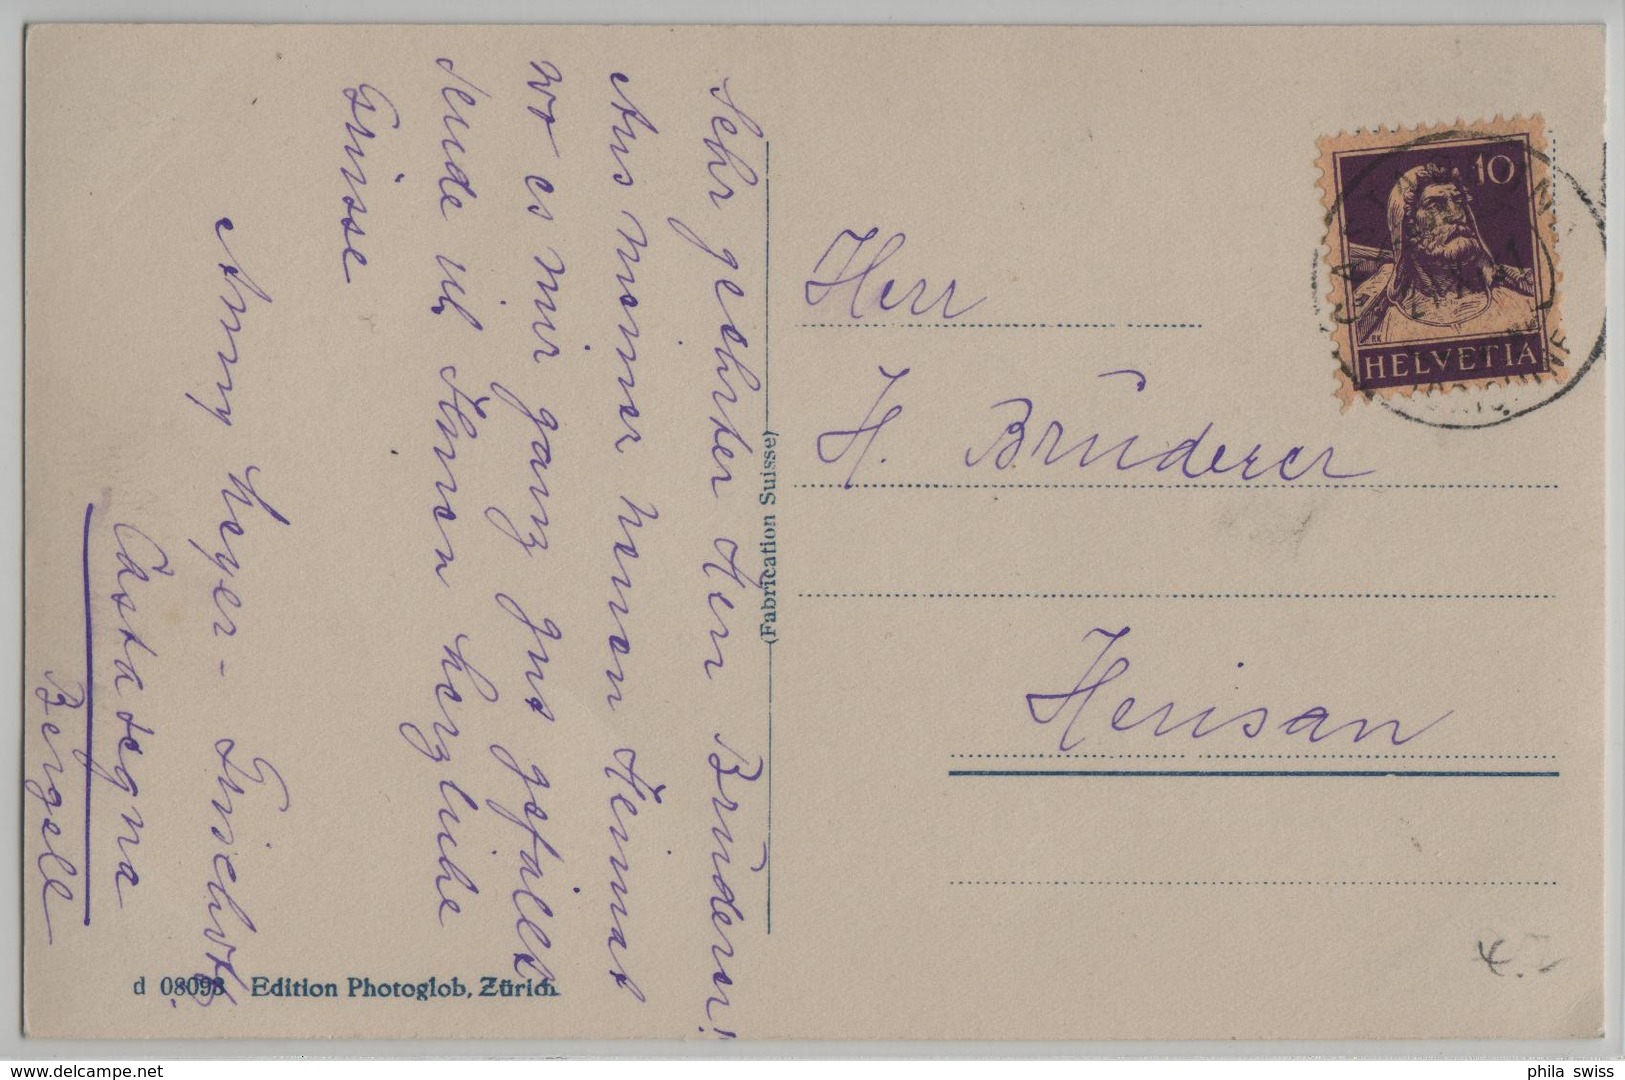 Sehr geehrter Herr Brüderer!
Aus meiner neuen Heimat
wo es mir ganz gut gefällt
sende ich Ihnen herzliche
Grüsse
Anny
Castasegna
Bergell
d 08093 Edition Photoglob, Zürich.
(Fabrication Suisse)
Herr
H. Brüderer
Herisau
10
HELVETIA
phila swiss
www.delcampe.net